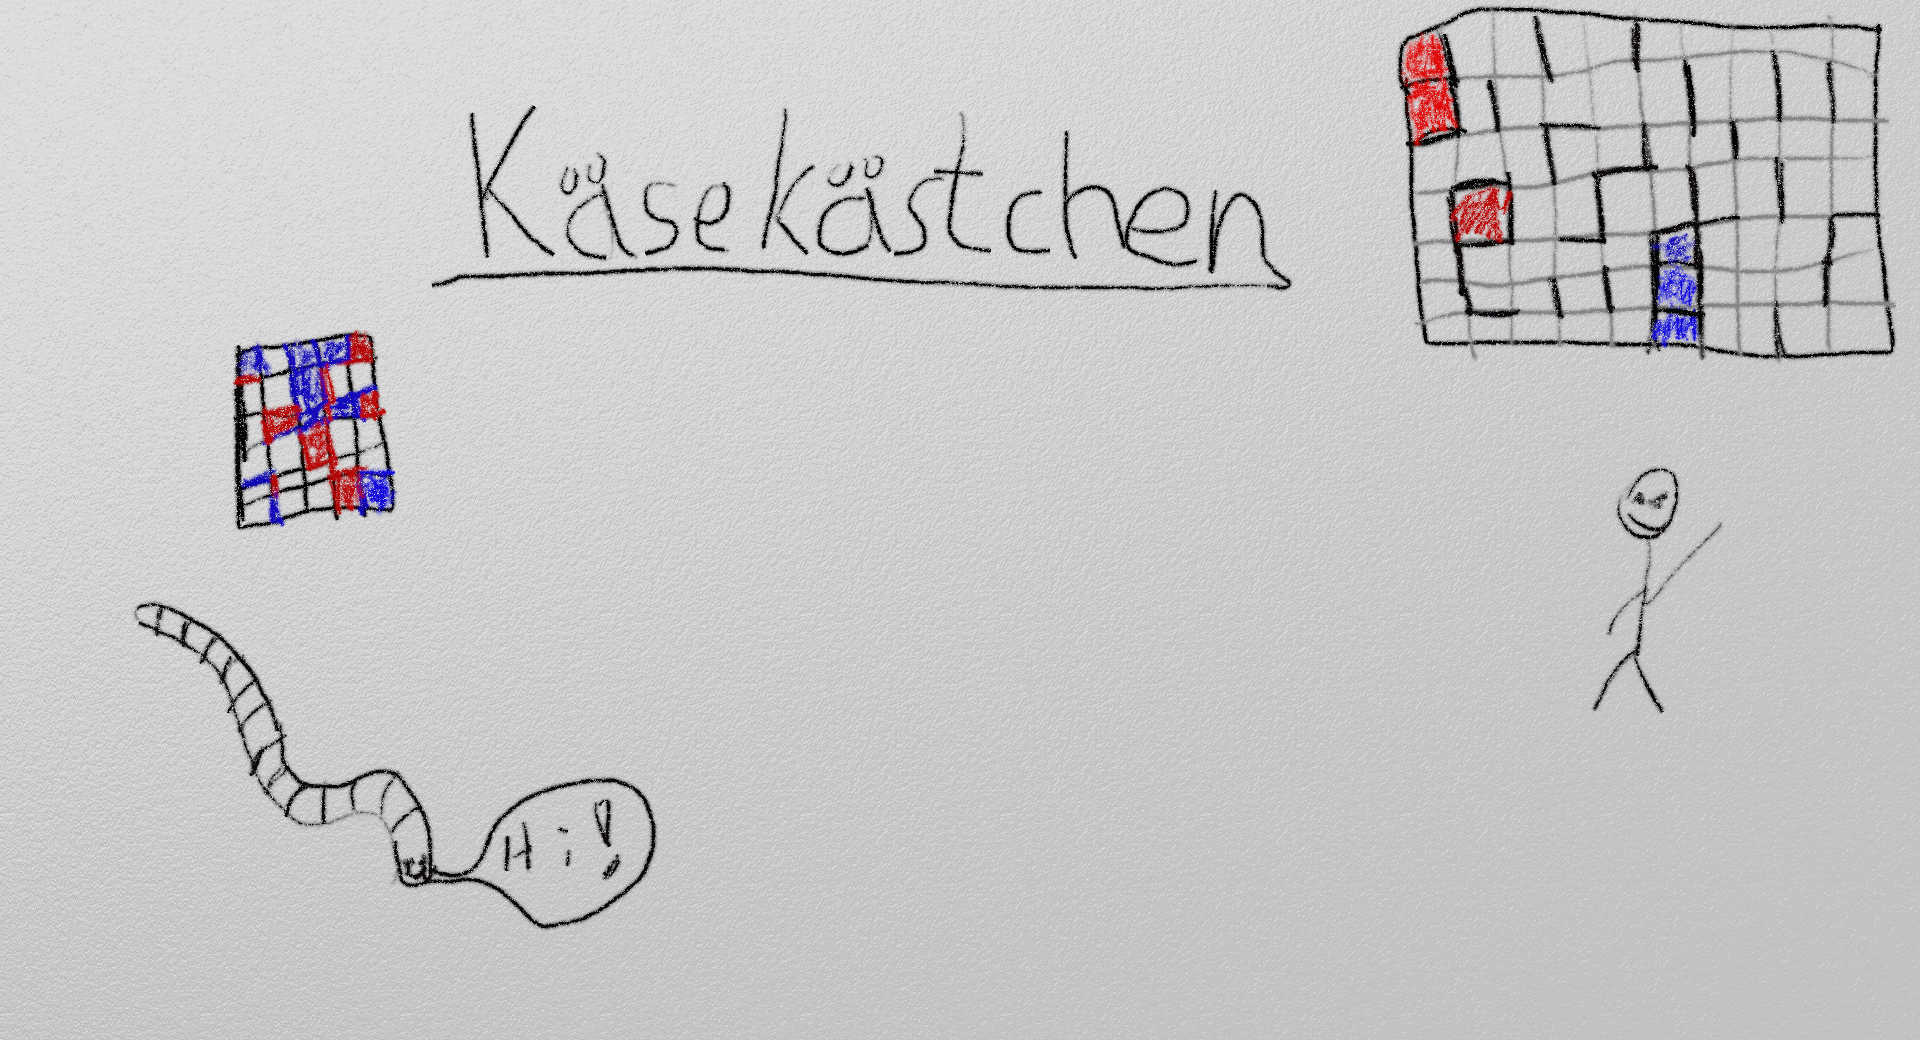 Käsekästchen
Hi!